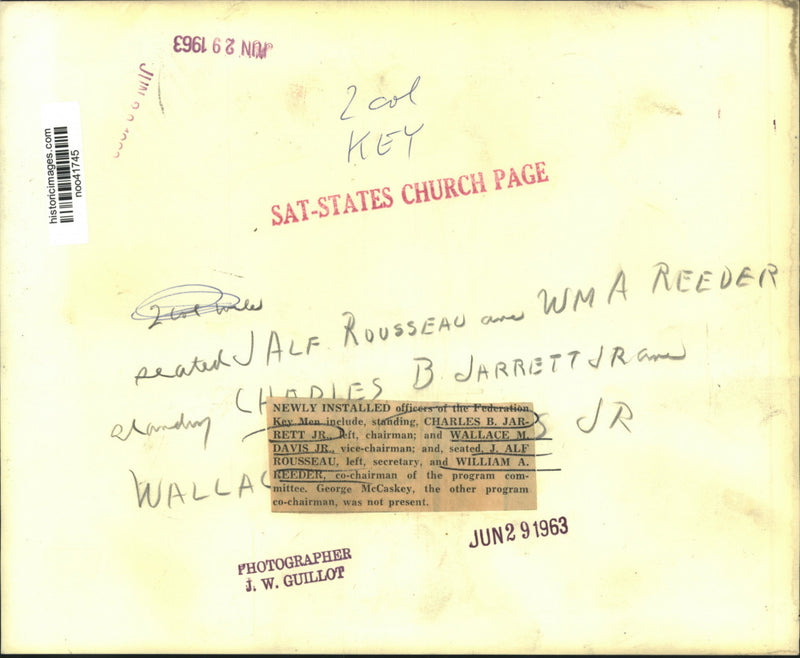 JUN 29 1963
JUN
historicimages.com
noo41745
2 col
KEY
SAT-STATES CHURCH PAGE
2 col
seated J ALF ROUSSEAU and WM A REEDER
standing CHARLES B JARRETT JR and
WALLAC S JR
NEWLY INSTALLED officers of the Federation
Key Men include, standing, CHARLES B. JAR-
RETT JR., left, chairman; and WALLACE M.
DAVIS JR., vice-chairman; and, seated, J. ALF
ROUSSEAU, left, secretary, and WILLIAM A.
REEDER, co-chairman of the program com-
mittee. George McCaskey, the other program
co-chairman, was not present.
JUN 29 1963
PHOTOGRAPHER
J. W. GUILLOT